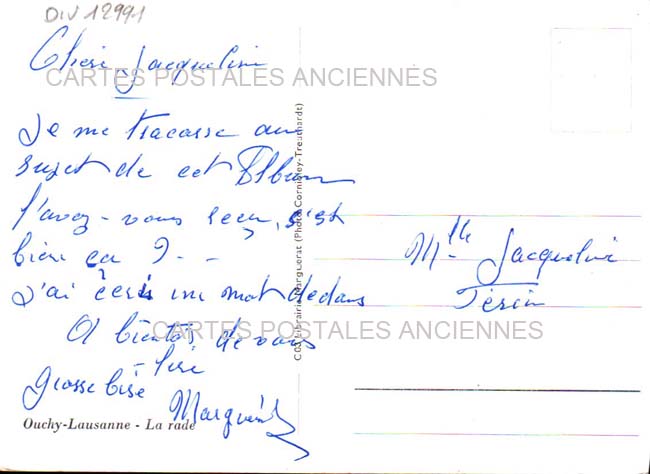 DIV 12991
Chère Jacqueline
CARTES POSTALES ANCIENNES
Je me tracasse au
sujet de cet Album
l'avez-vous reçu, c'est
bien ça ? - -
J'ai écris un mot dedans
A bientôt de vous
- lire
grosse bise
Ouchy-Lausanne - La rade
Mlle Jacqueline
CARTES POSTALES ANCIENNES